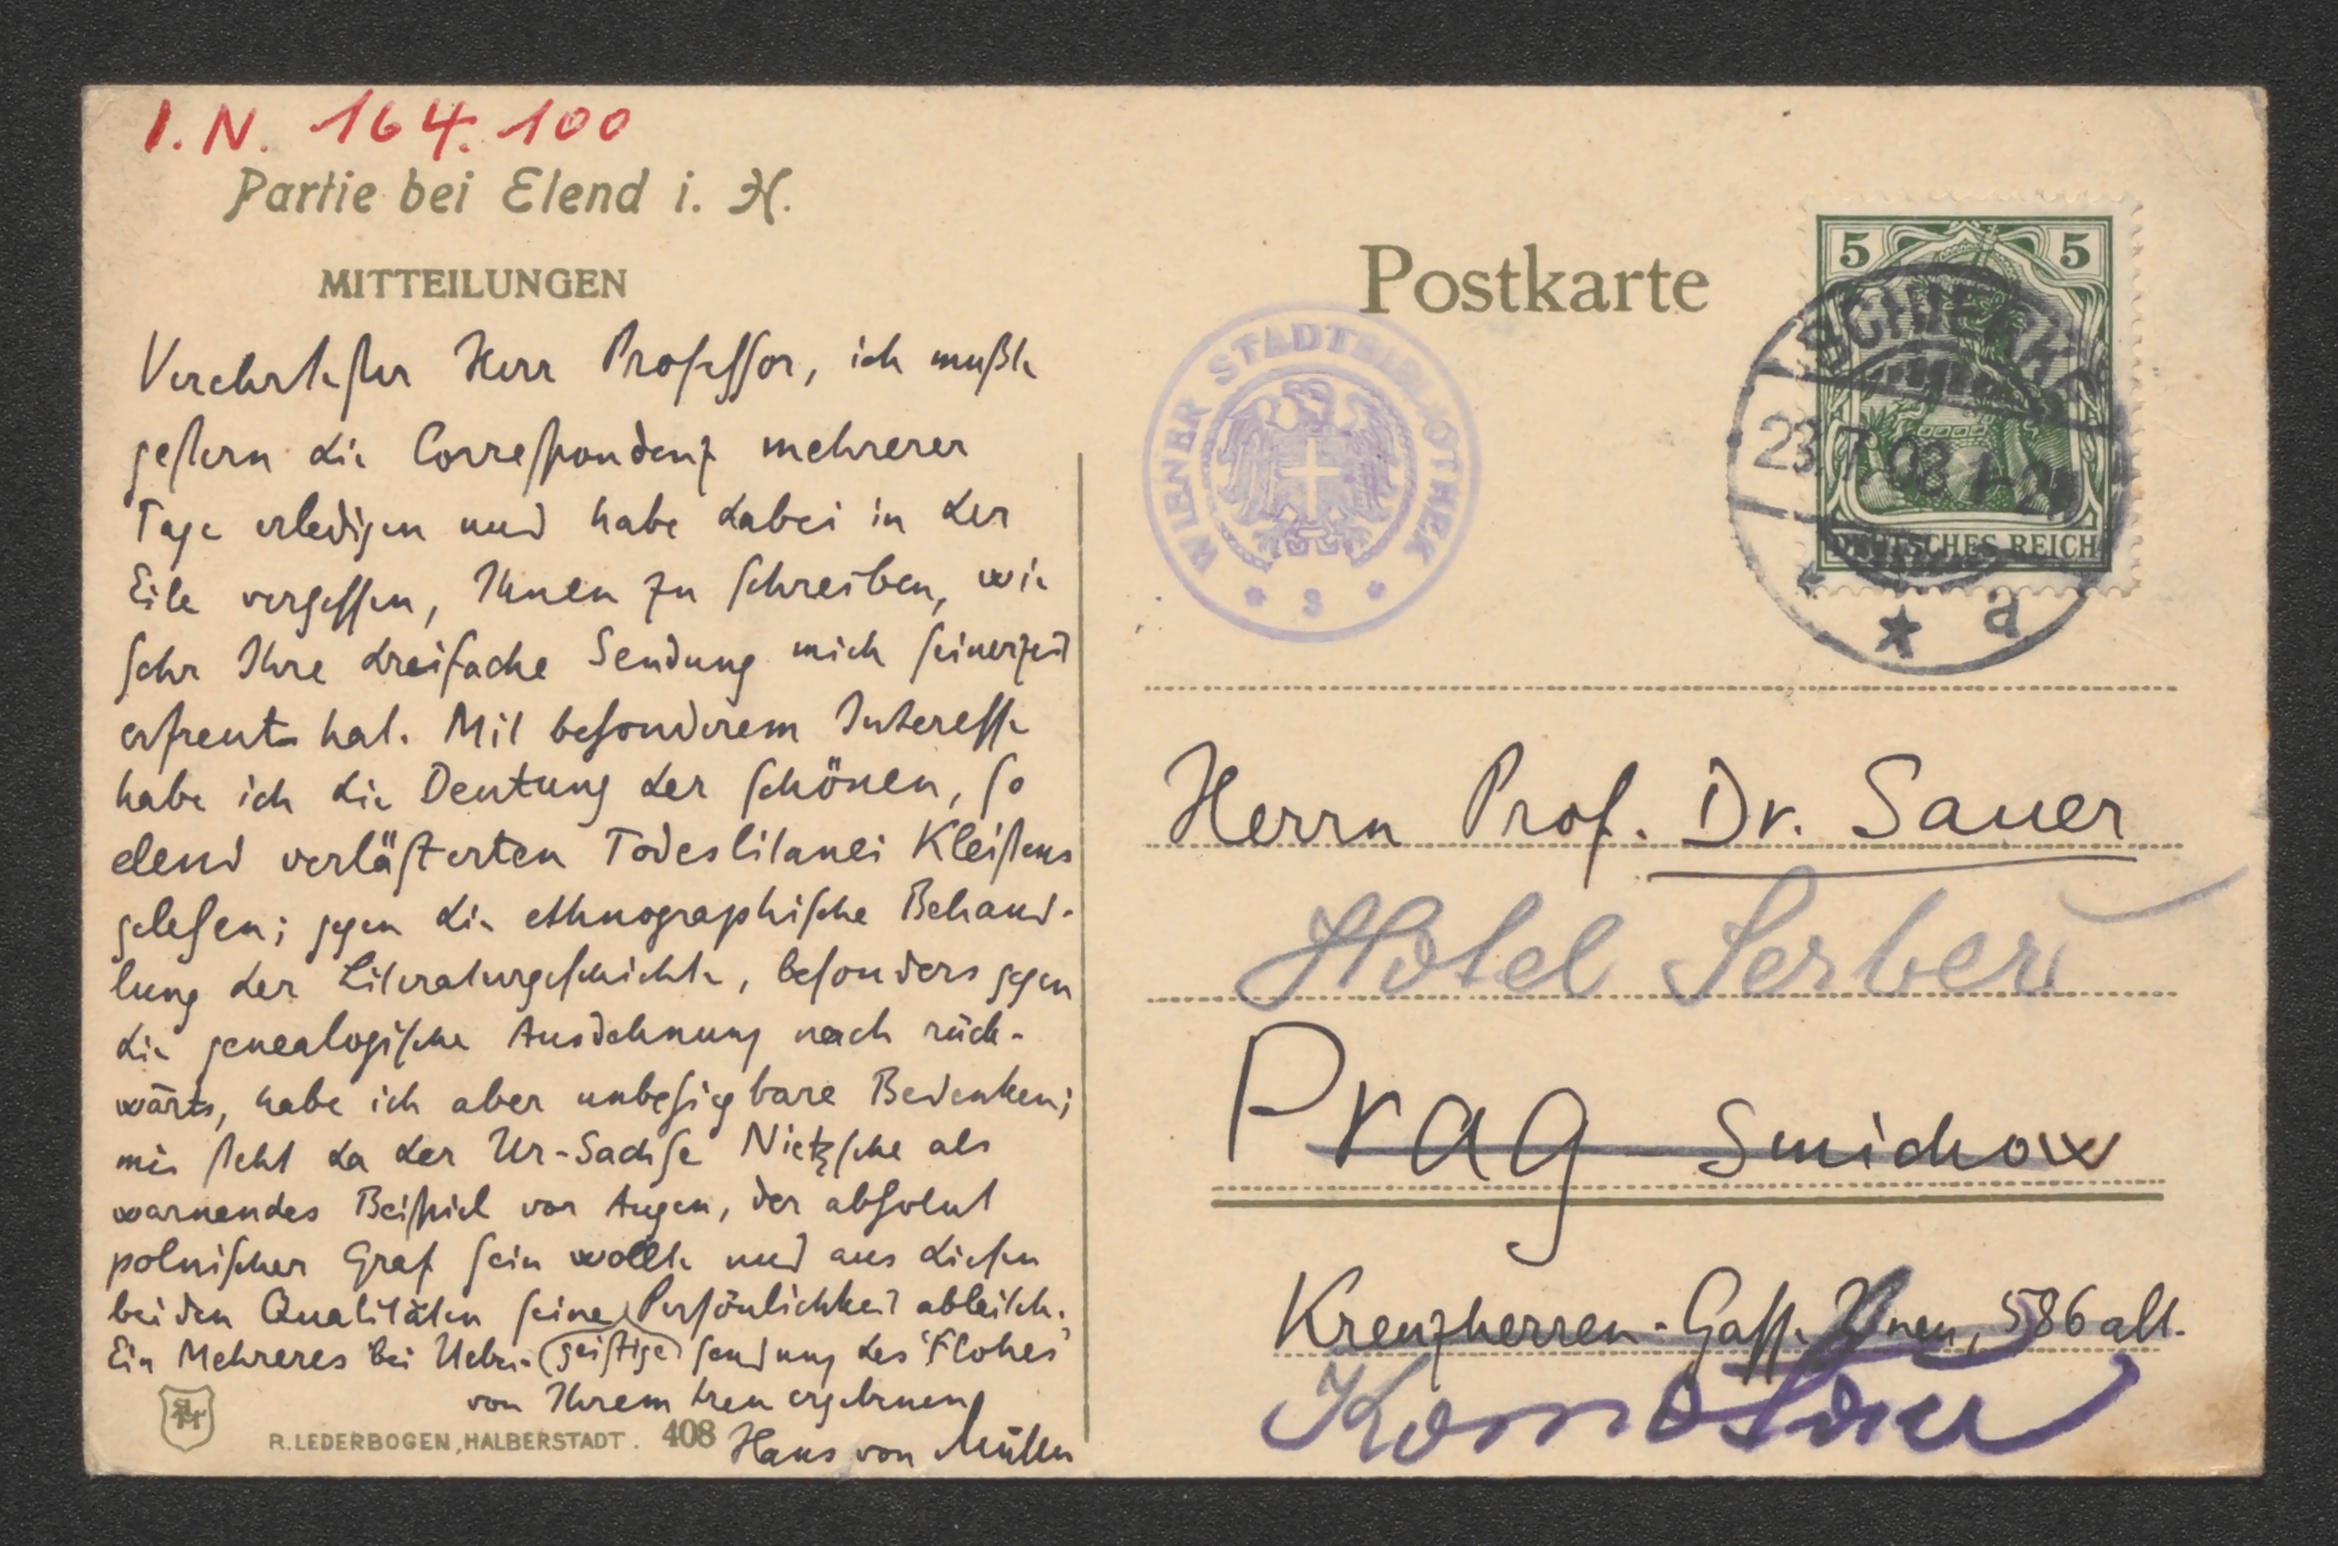 I.N. 164.100
Partie bei Elend i. H.
MITTEILUNGEN
Verehrtester Herr Professor, ich mußte
gestern die Correspondenz mehrerer
Tage erledigen und habe dabei in der
Eile vergessen, Ihnen zu schreiben, wie
sehr Ihre dreifache Sendung mich seinerzeit
erfreut hat. Mit besonderem Interesse
habe ich die Deutung der schönen, so
elend verlästerten Todeslitanei Kleistens
gelesen; gegen die ethnographische Behand-
lung der Literaturgeschichte, besonders gegen
die genealogische Ausdehnung nach rück-
wärts, habe ich aber unbesiegbare Bedenken;
mir steht da der Ur-Sachse Nietzsche als
warnendes Beispiel vor Augen, der absolut
polnischer Graf sein wollte und aus diesen
beiden Qualitäten seine geistige Persönlichkeit ableitete.
Ein Mehreres bei Ueber-sendung des 'Flohes'
von Ihrem treu ergebenen
Hans von Müller
R. LEDERBOGEN, HALBERSTADT. 408
Postkarte
WIENER STADTBIBLIOTHEK
* 3 *
5 5
DEUTSCHES REICH
SCHIERKE
23.7.08 1-2N
* a
Herrn Prof. Dr. Sauer
Hotel
Prag - Smichow
Kreuzherren-Gasse neu, 586 alt.